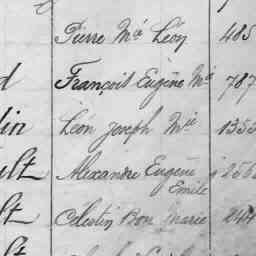 Pierre Mie Léon 485
d François Eugène Mie 787
lin Léon Joseph Mie 1353
ult Alexandre Eugène
Emile
lt Célestin Bon Marie